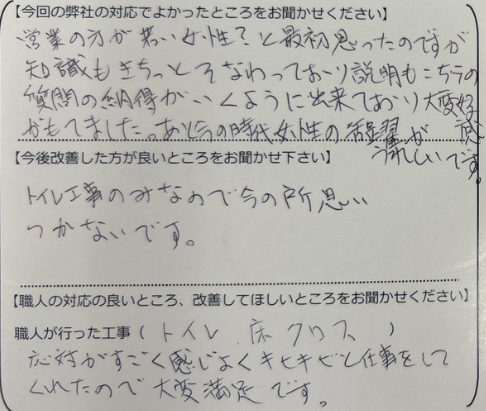 【今回の弊社の対応でよかったところをお聞かせください】
営業の方が若い女性?と最初思ったのですが
知識もきちっとそなわっており説明もこちらの
質問の納得がいくように出来ており大変好感
がもてました。今の時代女性の活躍が
うれしいです。
【今後改善した方が良いところをお聞かせ下さい】
トイレ工事のみなので今の所思い
つかないです。
【職人の対応の良いところ、改善してほしいところをお聞かせください】
職人が行った工事 ( トイレ 床 クロス )
応対がすごく感じよくキビキビと仕事をして
くれたので大変満足です。